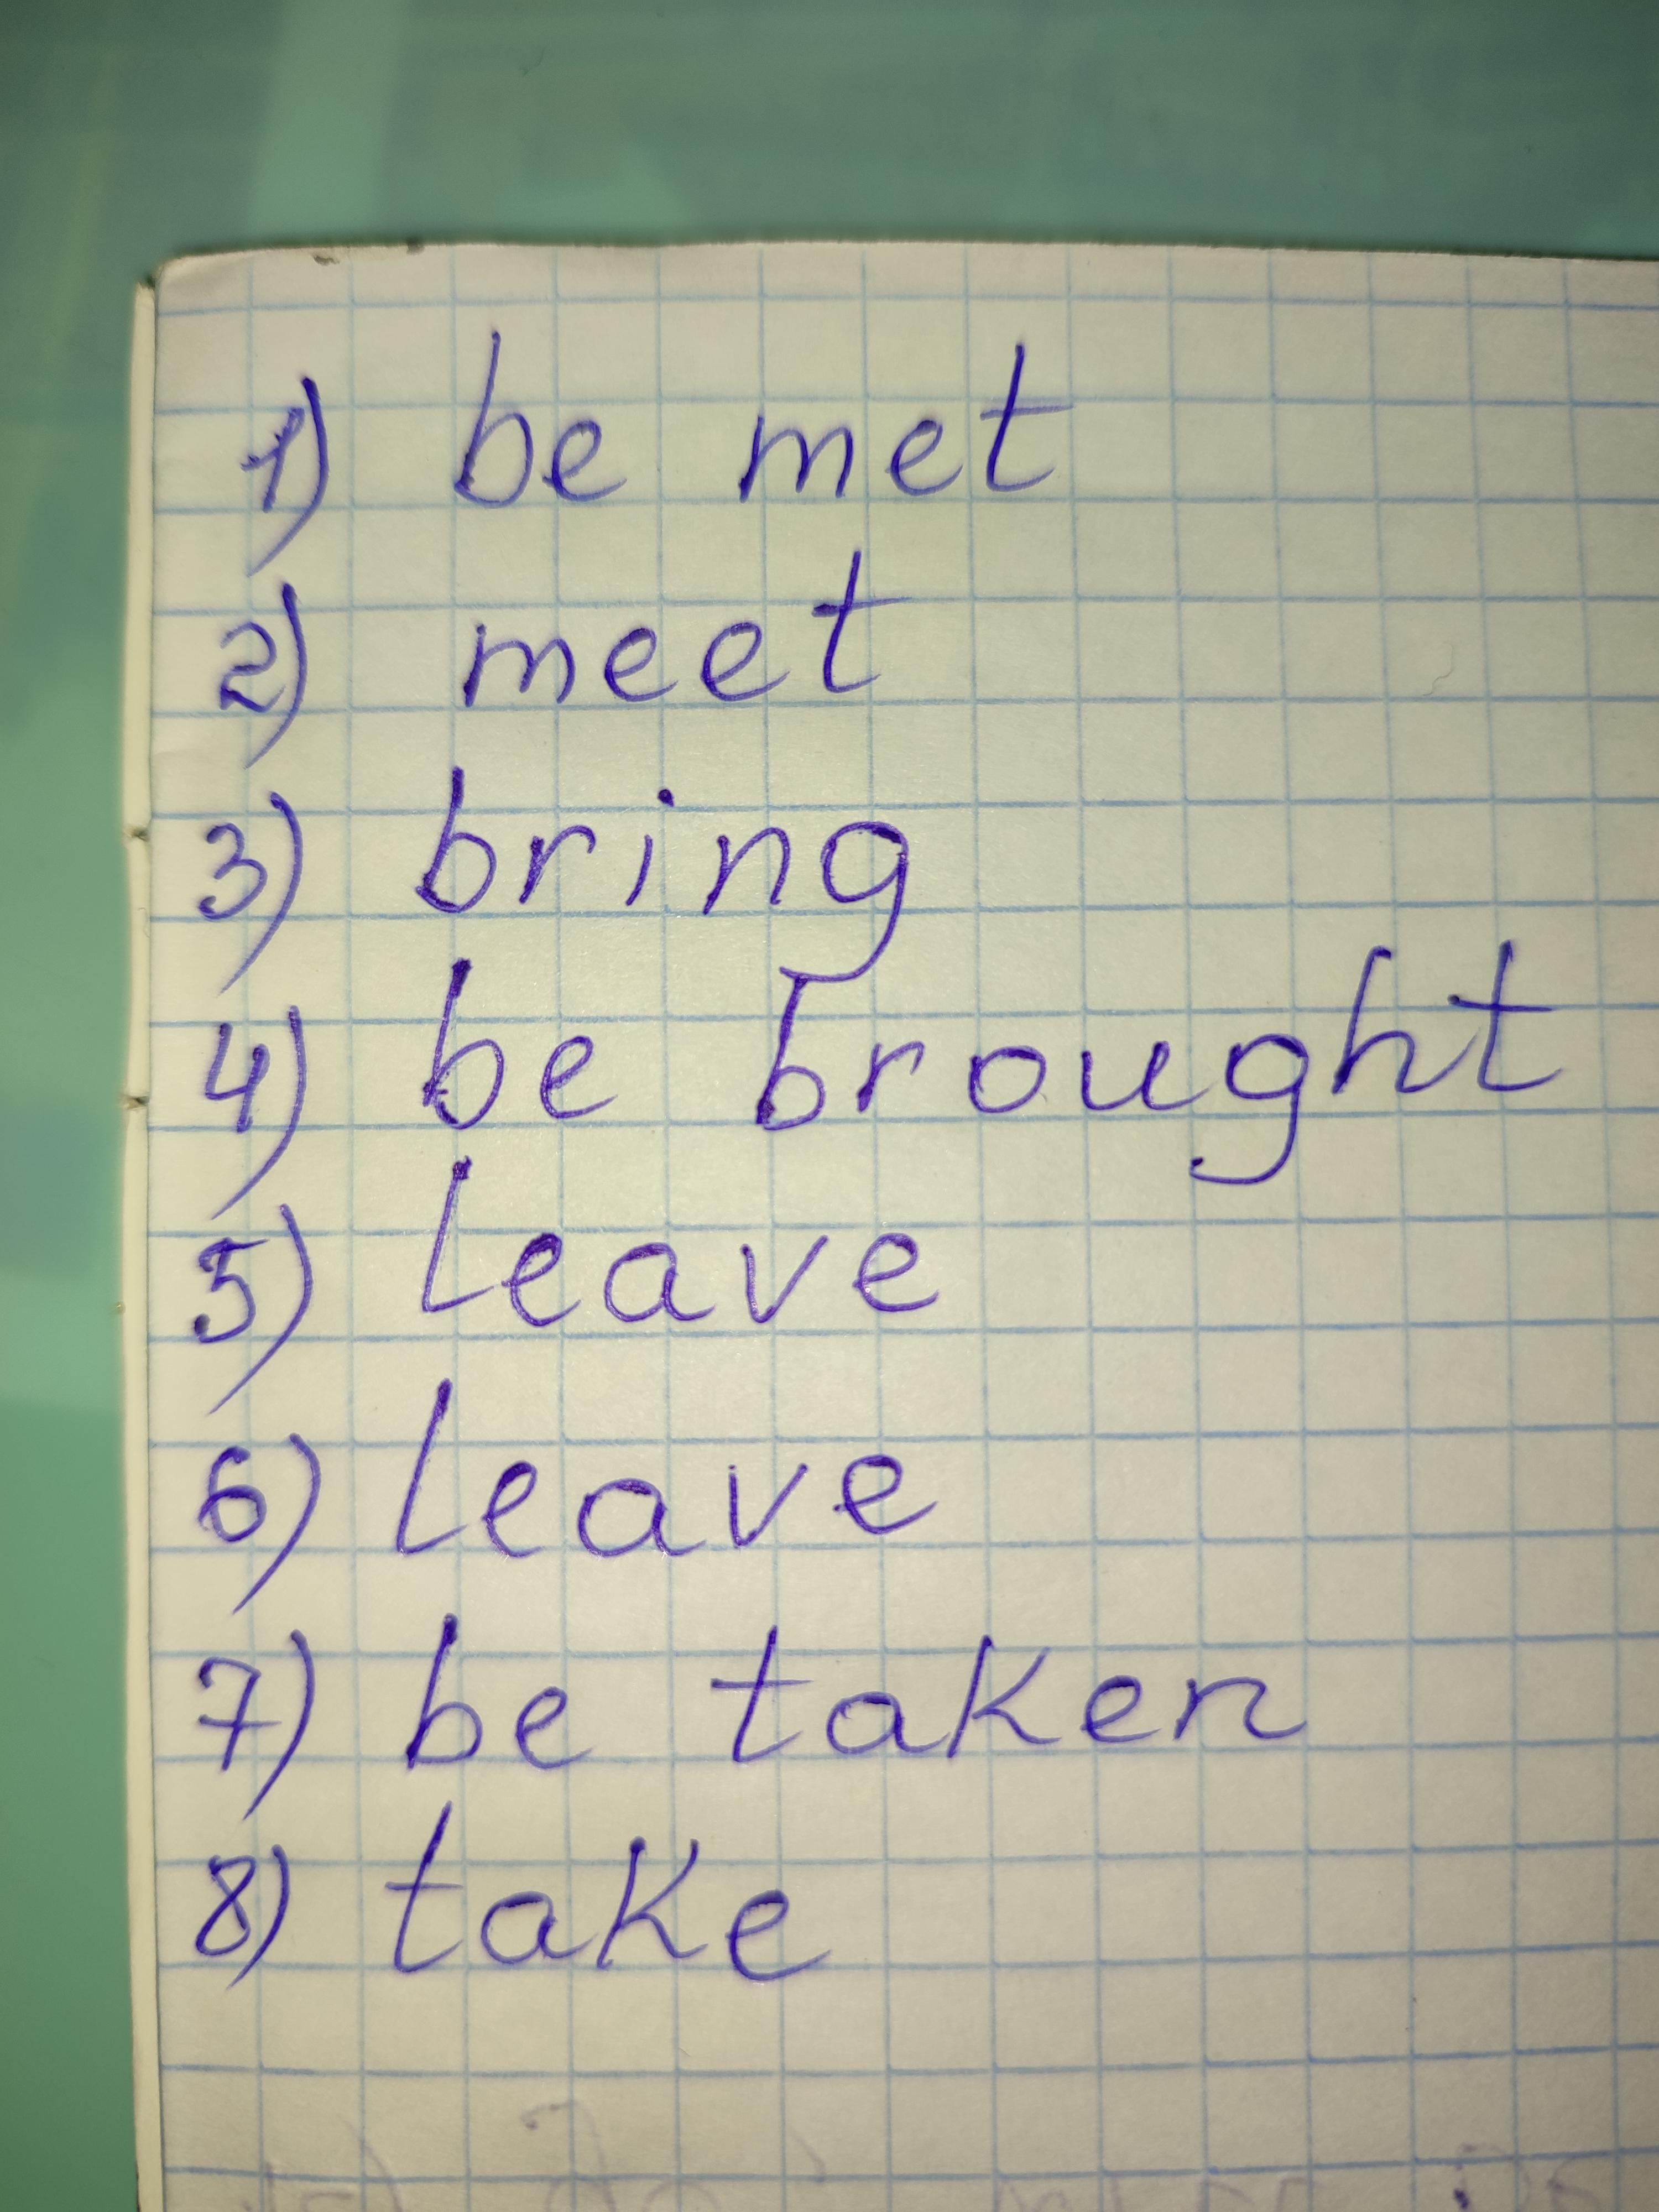 1) be met
2) meet
3) bring
4) be brought
5) leave
6) leave
7) be taken
8) take